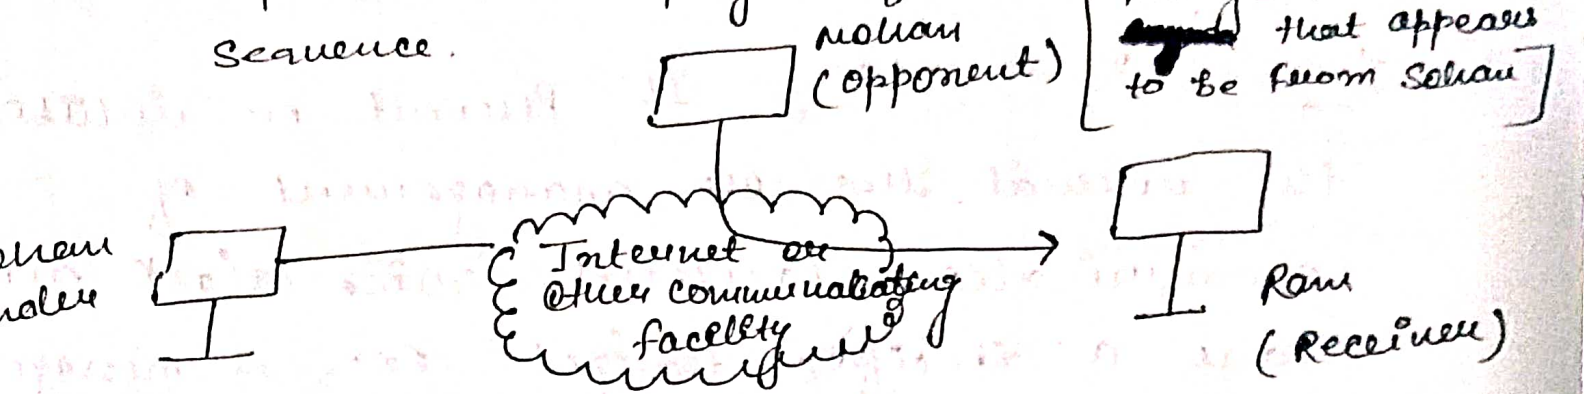 Sequence.
Mohan
(opponent)
that appears
to be from Sohan
Internet or
other communicating
facility
Ram
(Receiver)